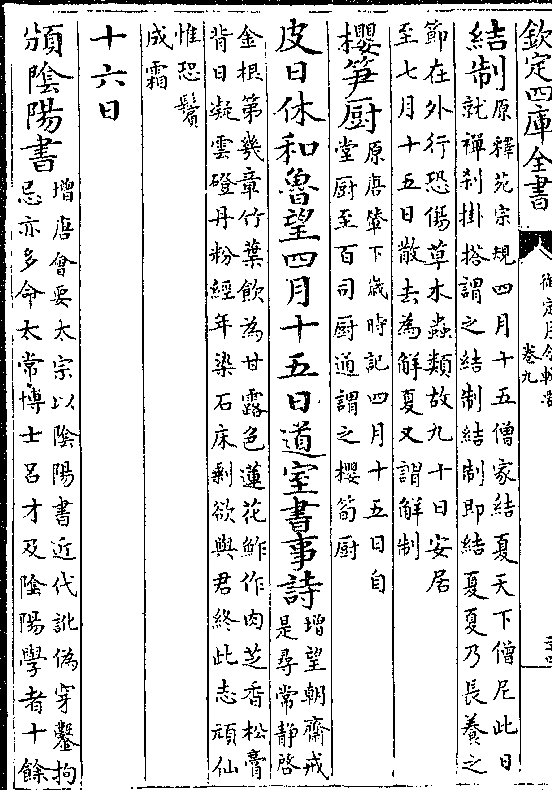 欽定四庫全書
御定月令輯要
卷九
結制原釋苑宗規四月十五僧家結夏天下僧尼此日
就禪刹掛搭謂之結制結制即結夏夏乃長養之
節在外行恐傷草木蟲類故九十日安居
至七月十五日散去為解夏又謂解制
櫻筍厨原唐輦下歲時記四月十五日自
堂厨至百司厨通謂之櫻筍厨
皮日休和魯望四月十五日道室書事詩增望朝齋戒
是尋常静啓
金根第幾章竹葉飲為甘露色蓮花鮓作肉芝香松膏
背日凝雲磴丹粉經年染石床剩欲與君終此志頑仙
惟恐鬢
成霜
十六日
頒陰陽書增唐會要太宗以陰陽書近代訛偽穿鑿拘
忌亦多命太常博士呂才及陰陽學者十餘